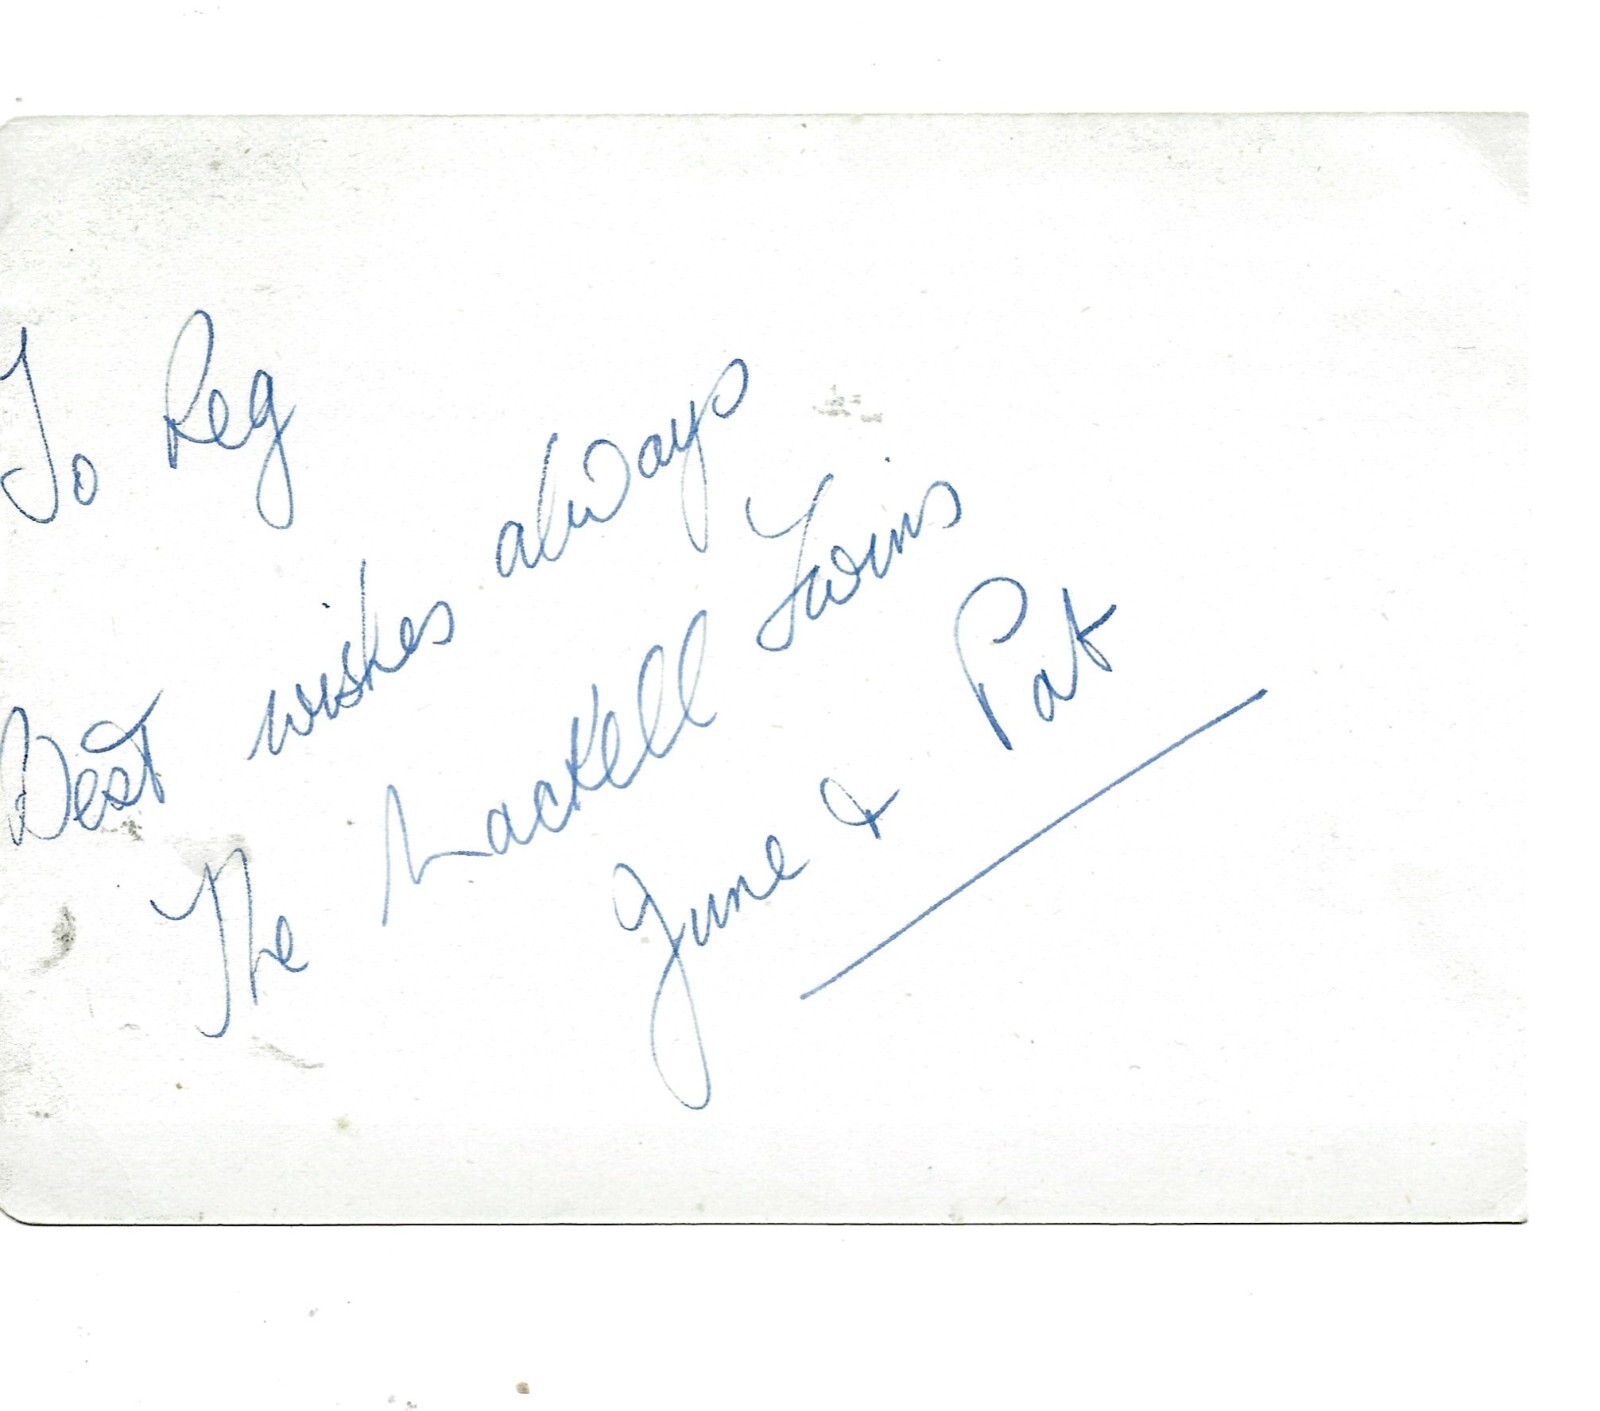 To Reg
Best wishes always
The Mackell Twins
June & Pat